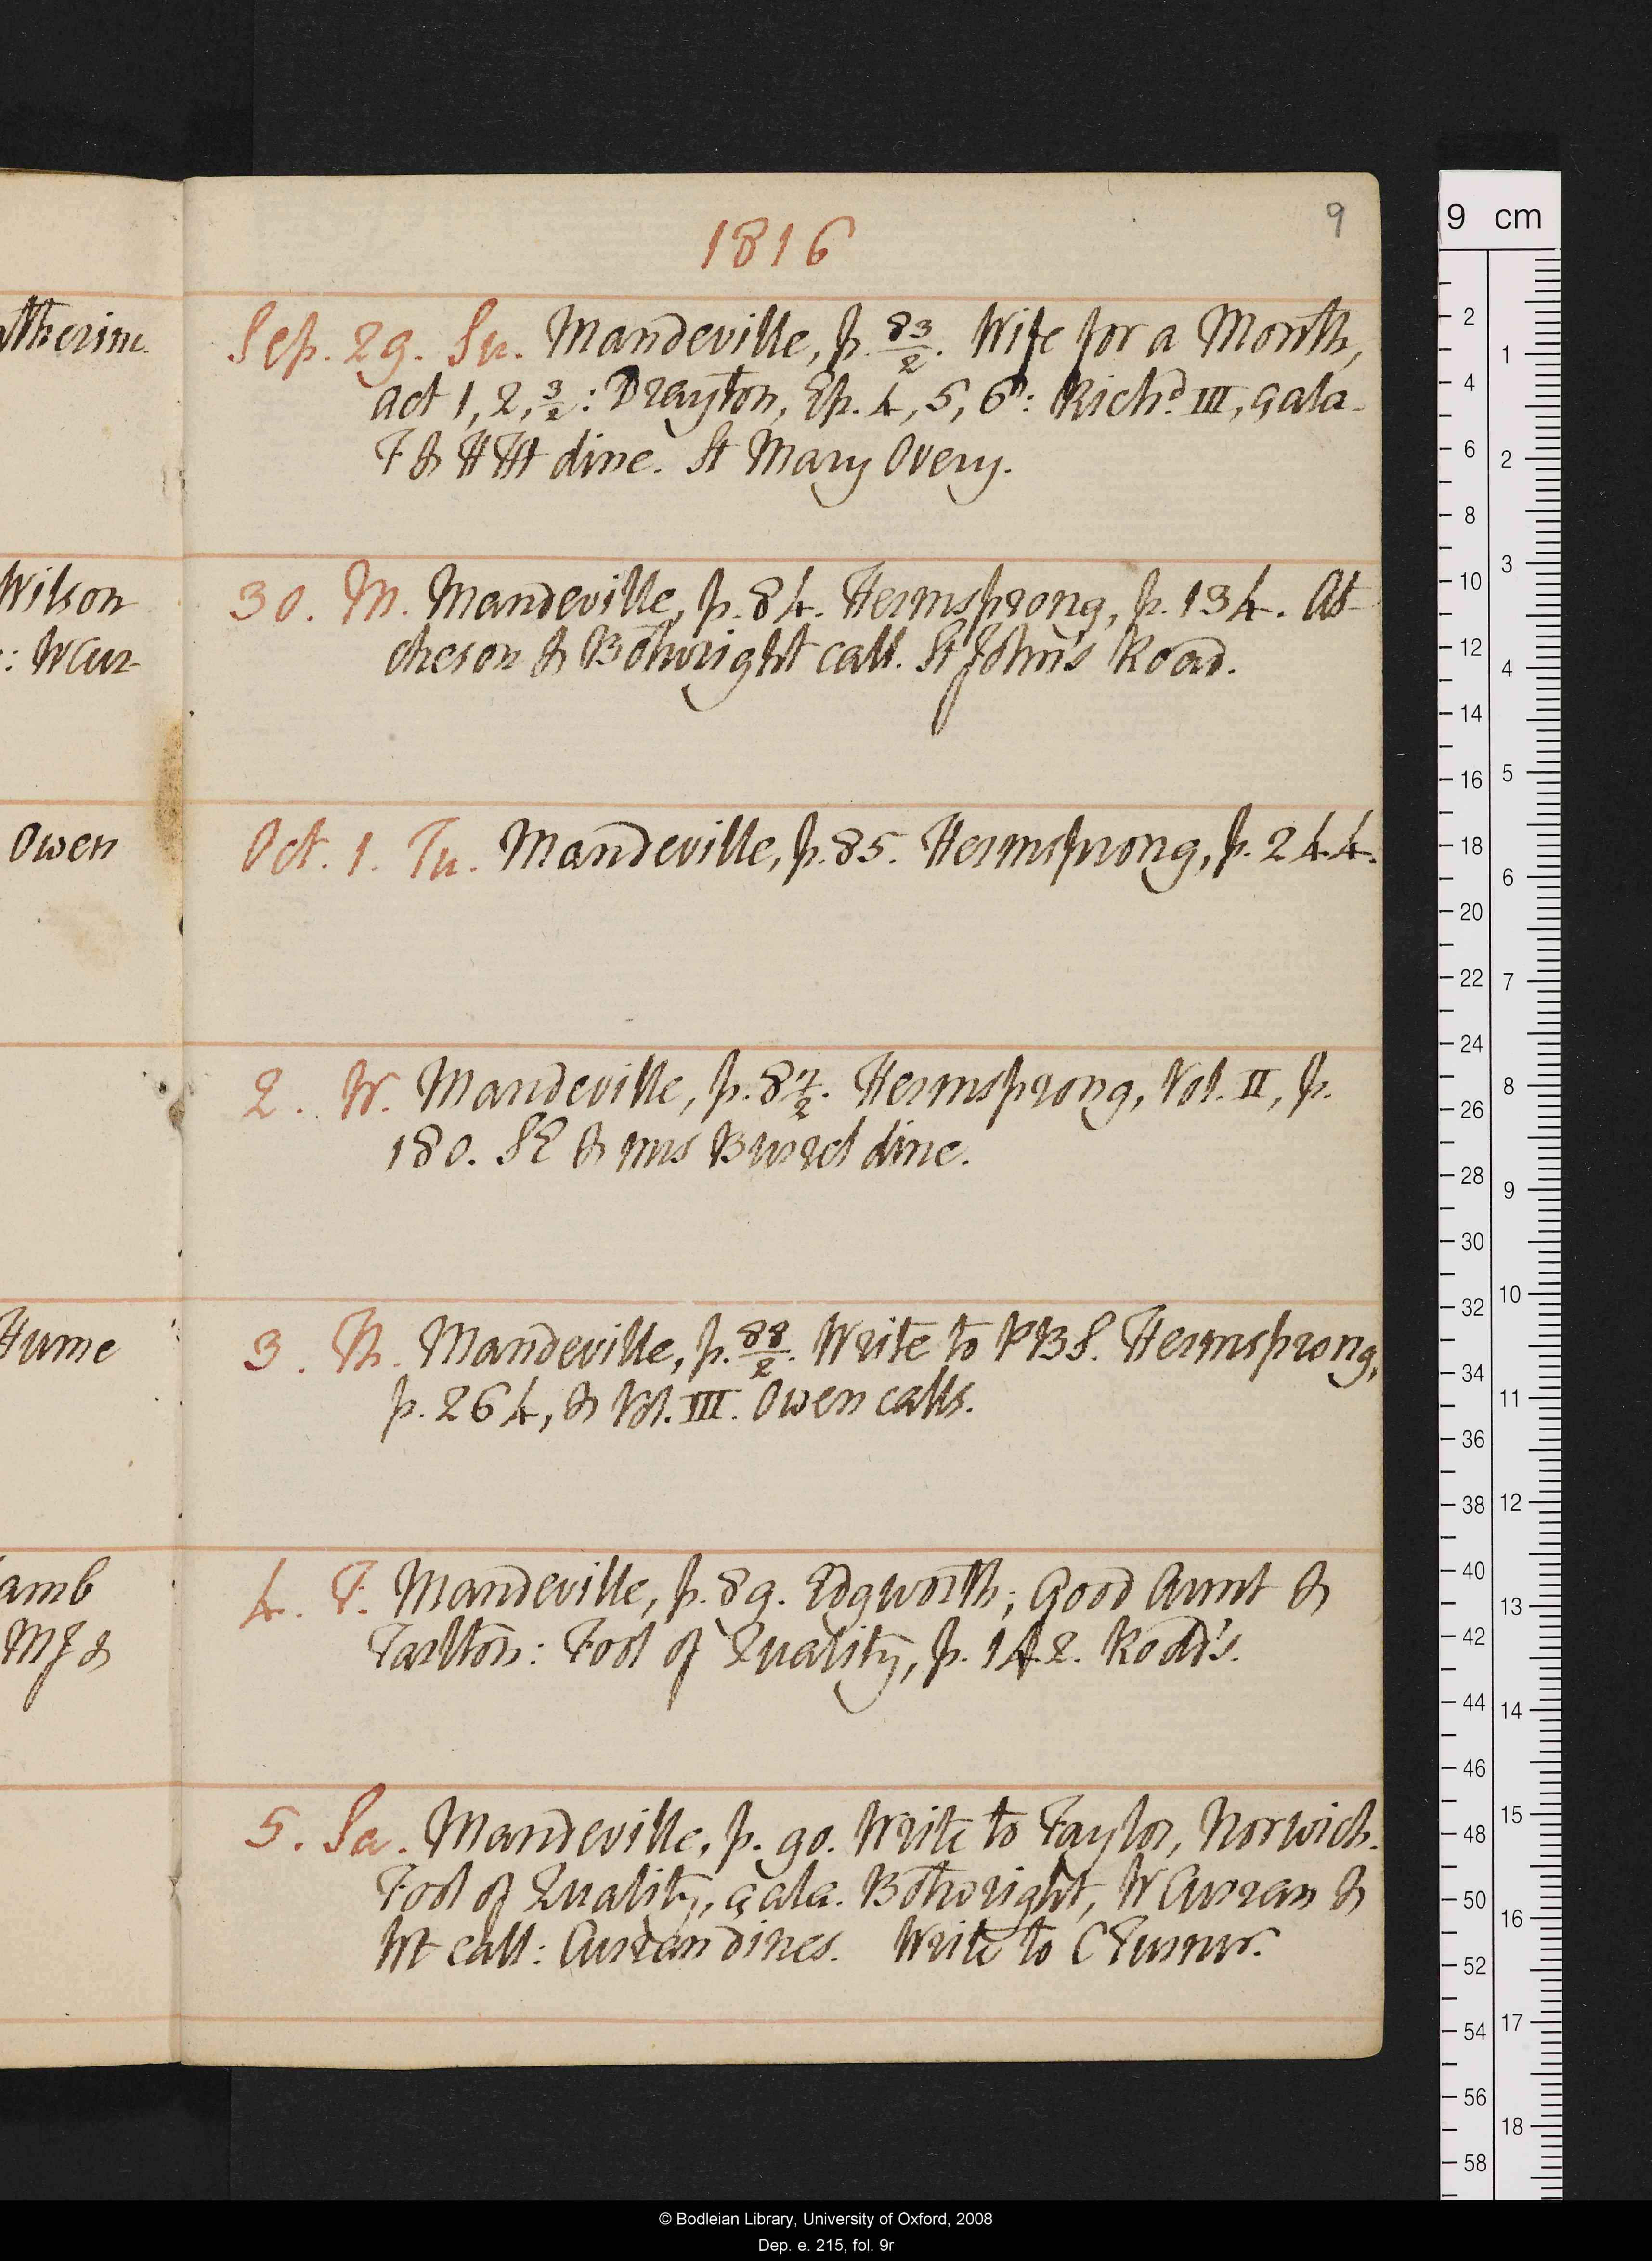 1816
9
Sep. 29. Su. Mandeville, p. 83/2. Wife for a Month,
act 1, 2, 3/2: Drayton, Ep. 4, 5, 6: Richd III, çala.
T & H Ht dine. St Mary Overy.
30. M. Mandeville, p. 84. Hermsprong, p. 134. At-
cheson & Bothwright call. St John's Road.
Oct. 1. Tu. Mandeville, p. 85. Hermsprong, p. 244.
2. W. Mandeville, p. 87/2. Hermsprong, Vol. II, p.
180. SE & mrs Burrel dine.
3. Th. Mandeville, p. 88/2. Write to PBS. Hermsprong,
p. 264, & Vol. III. Owen calls.
4. F. Mandeville, p. 89. Edgworth; Good Aunt &
Tarlton: Fool of Quality, p. 142. Rodd's.
5. Sa. Mandeville, p. 90. Write to Taylor, Norwich.
Fool of Quality, çala. Bothwright, W Curran &
Ht call: Curran dines. Write to C Turner.
therine
Wilson
: W Cur-
Owen
Hume
amb
MJ &
9 cm
2 4 6 8 10 12 14 16 18 20 22 24 26 28 30 32 34 36 38 40 42 44 46 48 50 52 54 56 58
1 2 3 4 5 6 7 8 9 10 11 12 13 14 15 16 17 18
© Bodleian Library, University of Oxford, 2008
Dep. e. 215, fol. 9r